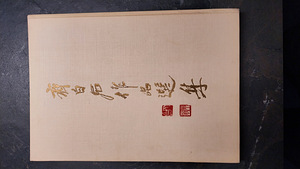 齊白石作品選集